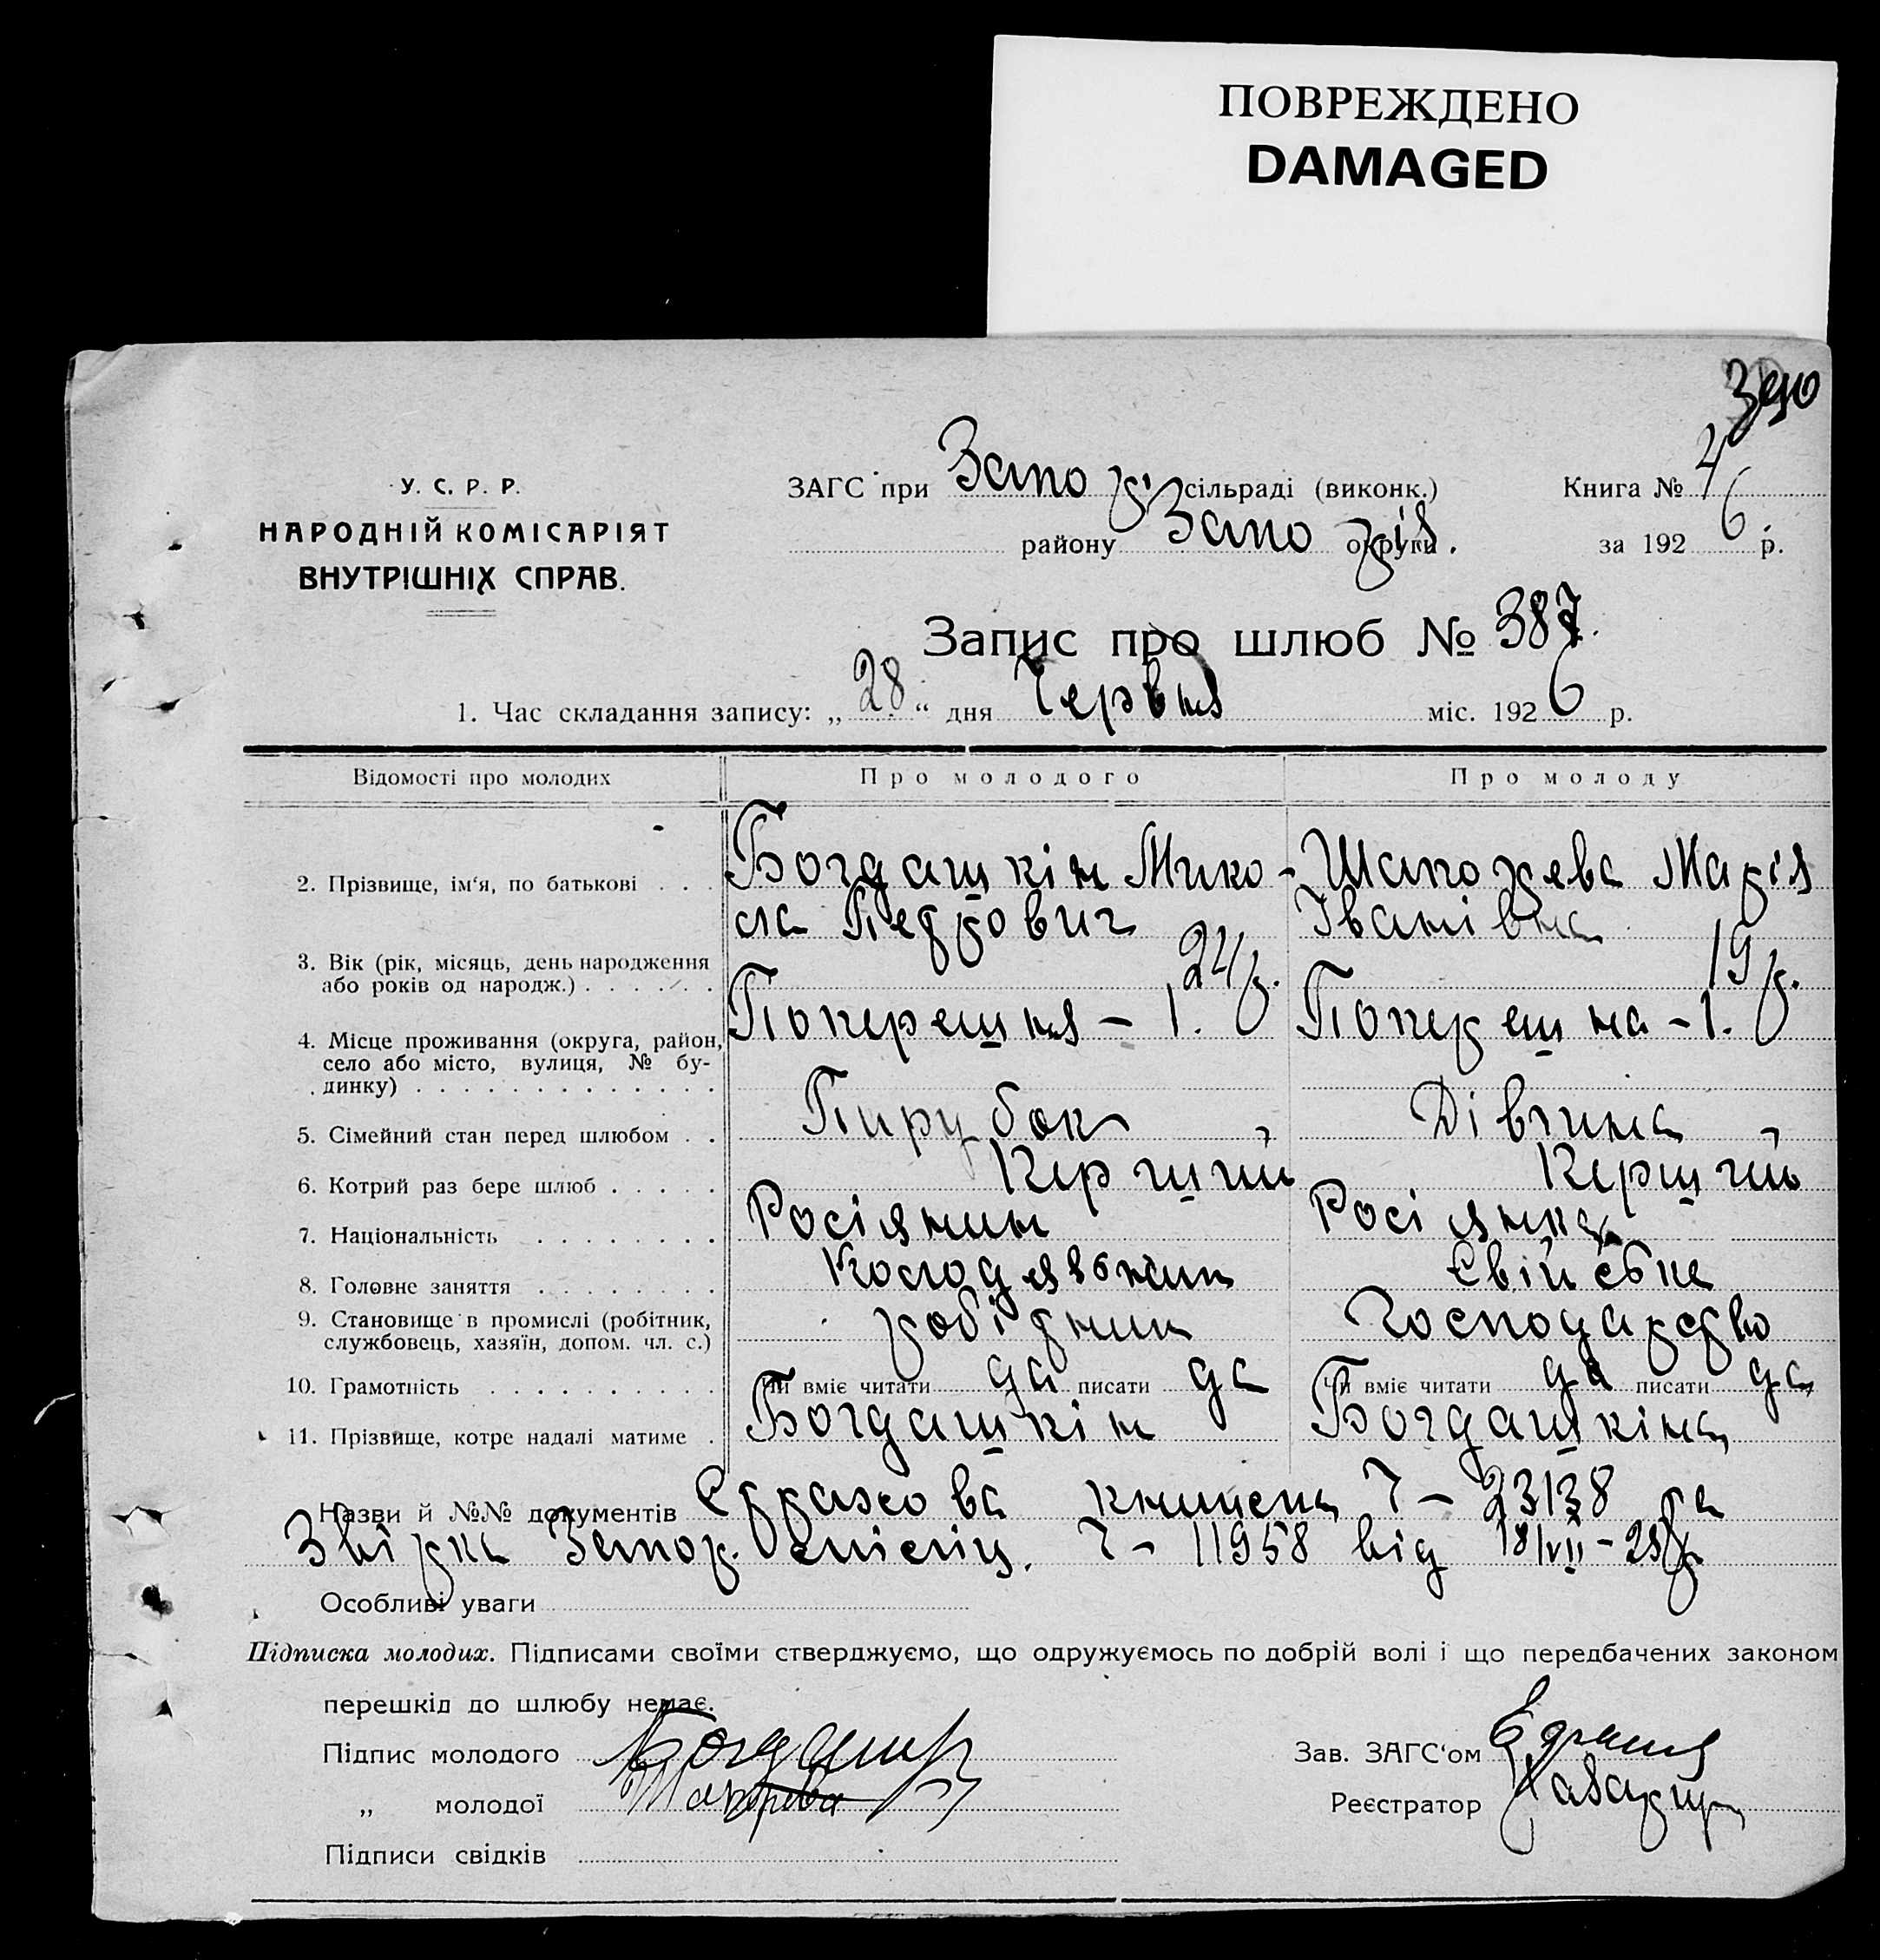 ПОВРЕЖДЕНО
DAMAGED
390
У. С. Р. Р.
НАРОДНІЙ КОМІСАРІЯТ
ВНУТРІШНІХ СПРАВ.
ЗАГС при Запоріз. сільраді (виконк.) Книга № 4
району Запоріз. округи за 1926 р.
Запис про шлюб № 387.
1. Час складання запису: „28“ дня Червня міс. 1926 р.
Відомості про молодих Про молодого Про молоду
2. Прізвище, ім‘я, по батькові . . . Богдашкін Мико- Шапорева Марія
ла Педрович Іванівна
3. Вік (рік, місяць, день народження
або років од народж.) . . . . . . 24 р. 19 р.
4. Місце проживання (округа, район,
село або місто, вулиця, № бу-
динку) . . . . . . . . . . . . . Поперешня – 1. Поперешна – 1.
5. Сімейний стан перед шлюбом . . Пирубок Дівчина
6. Котрий раз бере шлюб . . . . . Перший Перший
7. Національність . . . . . . . . Росіянин Росіянка
8. Головне заняття . . . . . . . . Свійське
9. Становище в промислі (робітник,
службовець, хазяїн, допом. чл. с.) робідник Господарство
10. Грамотність . . . . . . . . . . Чи вміє читати да писати да Чи вміє читати да писати да
11. Прізвище, котре надалі матиме . Богдашкін Богдашкіна
Назви й №№ документів книжка Ч – 23138 та
Запор. Ч – 11958 від
Особливі уваги
Підписка молодих. Підписами своїми стверджуємо, що одружуємось по добрій волі і що передбачених законом
перешкід до шлюбу немає.
Підпис молодого Зав. ЗАГС‘ом
„ молодої Шапорева Реєстратор
Підписи свідків